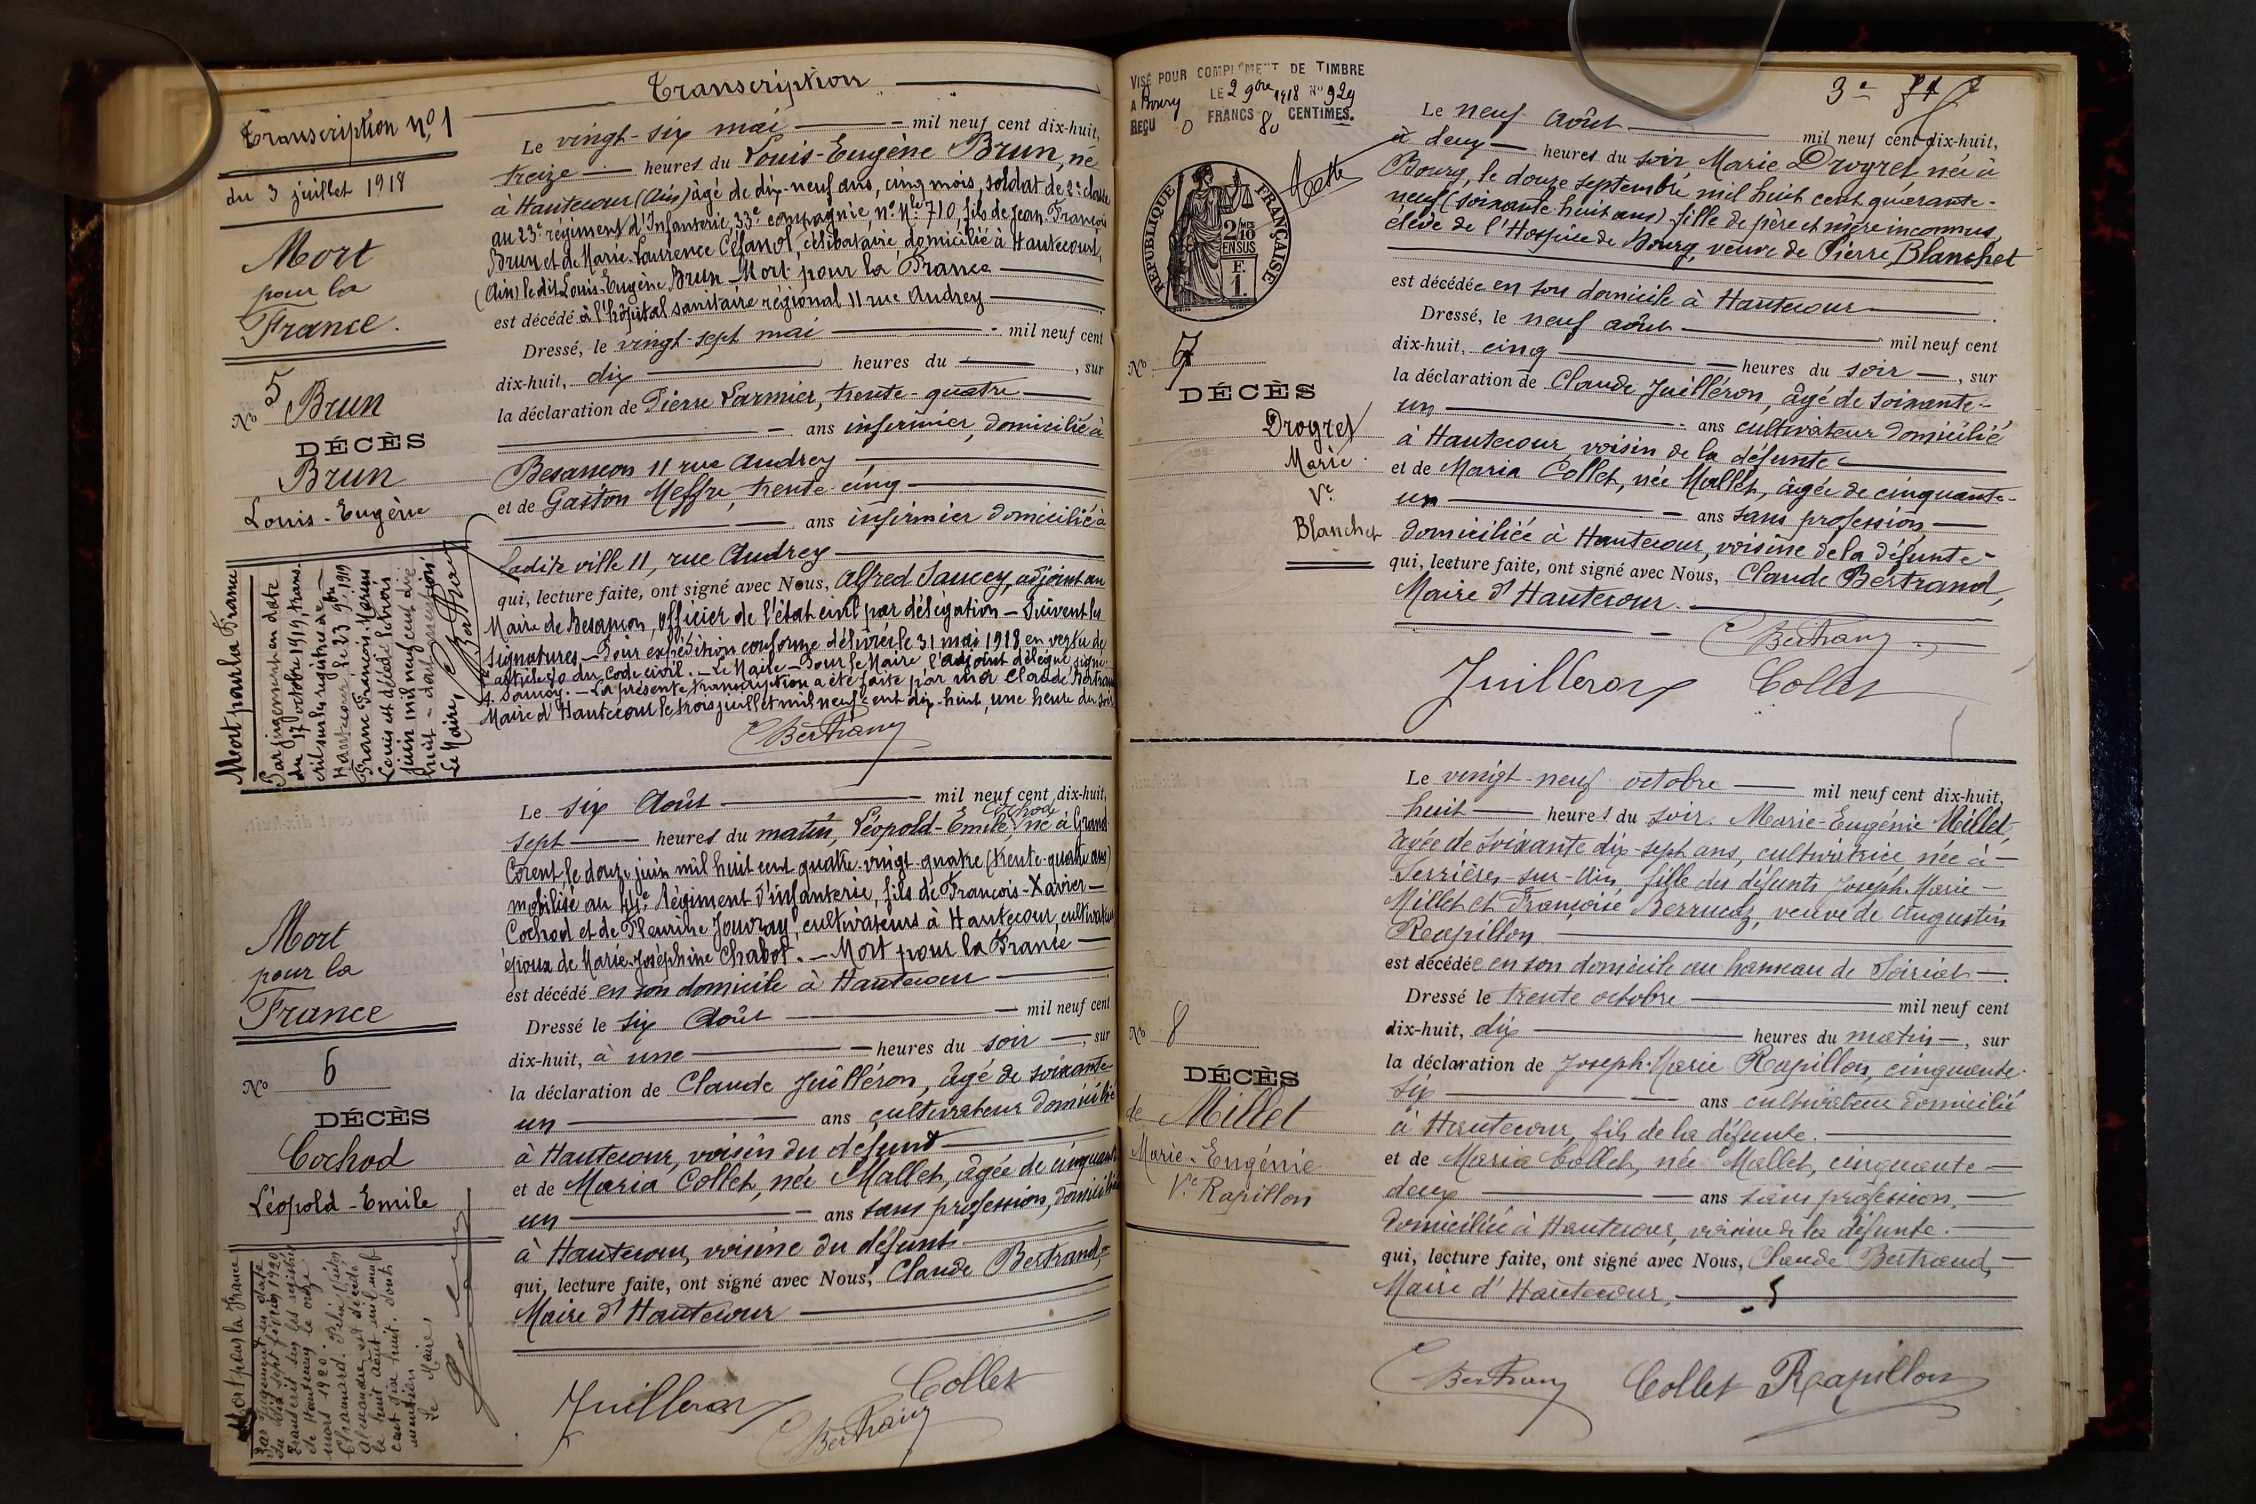 Transcription
Transcription N° 1
du 3 juillet 1918
Mort
pour la
France.
N° 5 Brun
DÉCÈS
Brun
Louis-Eugène
Le vingt-six mai mil neuf cent dix-huit,
treize heures du Louis-Eugène Brun, né
à Hautecour (Ain) âgé de dix-neuf ans, cinq mois, soldat de 2e classe
au 23e régiment d'Infanterie, 33e compagnie, n° Mle 710, fils de Jean-François
Brun et de Marie-Laurence, célibataire domicilié à Hautecourt,
(Ain) le dit Louis-Eugène Brun Mort pour la France
est décédé à l'hôpital sanitaire régional 11 rue Audrey
Dressé, le vingt-sept mai mil neuf cent
dix-huit, dix heures du , sur
la déclaration de Pierre Larmier, trente-quatre
ans infirmier, domicilié à
Besançon 11 rue Audrey
et de Gaston Meffre, trente-cinq
ans infirmier domicilié à
ladite ville 11, rue Audrey
qui, lecture faite, ont signé avec Nous, Alfred Saucey, adjoint au
Maire de Besançon, officier de l'état civil par délégation – Suivent les
signatures – Pour expédition conforme délivrée le 31 mai 1918 en vertu de
l'article 80 du Code civil. – Le Maire – Pour le Maire l'adjoint délégué signé:
A. Saucey. – La présente transcription a été faite par moi Claude Bertrand
Maire d'Hautecour le trois juillet mil neuf cent dix-huit, une heure du soir
C Bertrand
Mort pour la France
Par jugement en date
du 17 octobre 1919, trans-
crit sur le registre de
Hautecour le 23 9bre 1919
Franc François Marius
Louis est décédé le trois
juin mil neuf cent dix
huit – dont mention
Le Maire, C Bertrand
Mort
pour la
France
N° 6
DÉCÈS
Cochod
Léopold-Emile
Le six Août mil neuf cent dix-huit,
sept heures du matin, Léopold-Emile Cochod né à Grand
Corent le douze juin mil huit cent quatre-vingt-quatre (trente-quatre ans)
mobilisé au 44e Régiment d'infanterie, fils de François-Xavier
Cochod et de Fleurine Jouvray, cultivateurs à Hautecour, cultivateur
époux de Marie-Joséphine Chabot. – Mort pour la France
est décédé en son domicile à Hautecour
Dressé le six Août mil neuf cent
dix-huit, à une heures du soir, sur
la déclaration de Claude Juilléron, âgé de soixante-
un ans cultivateur domicilié
à Hautecour, voisin du défunt
et de Maria Collet, née Mallet, âgée de cinquante
un ans sans profession, domiciliée
à Hautecour, voisine du défunt
qui, lecture faite, ont signé avec Nous, Claude Bertrand,
Maire d'Hautecour
Juilleron Collet
C Bertrand
Mort pour la France
Par jugement en date
du dix sept février 1920
transcrit sur les registres
de Hautecour le onze
mars 1920.
Chanard
Alexandre est décédé
le huit août mil neuf
cent dix huit. dont
mention
Le Maire,
VISÉ POUR COMPLÉMENT DE TIMBRE
A Bourg LE 2 9bre 1918 N° 929
REÇU 0 FRANCS 80 CENTIMES.
REPUBLIQUE FRANÇAISE
2/10 EN SUS
F. 1.
N° 7
DÉCÈS
Drogret
Marie
Ve
Blanchet
Le neuf Août mil neuf cent dix-huit,
à deux heures du soir Marie Drogret née à
Bourg, le douze septembre mil huit cent quarante-
neuf (soixante huit ans) fille de père et mère inconnus,
élève de l'Hospice de Bourg, veuve de Pierre Blanchet
est décédée en son domicile à Hautecour
Dressé, le neuf août mil neuf cent
dix-huit, cinq heures du soir, sur
la déclaration de Claude Juilléron, âgé de soixante-
un ans cultivateur domicilié
à Hautecour, voisin de la défunte
et de Maria Collet, née Mallet, âgée de cinquante-
un ans sans profession,
domiciliée à Hautecour, voisine de la défunte
qui, lecture faite, ont signé avec Nous, Claude Bertrand,
Maire d'Hautecour.
C Bertrand
Juilleron Collet
N° 8
DÉCÈS
de Millet
Marie-Eugénie
Ve Rapillon
Le vingt-neuf octobre mil neuf cent dix-huit,
huit heures du soir. Marie-Eugénie Millet,
âgée de soixante dix-sept ans, cultivatrice née à
Serrières-sur-Ain, fille des défunts Joseph-Marie
Millet et Françoise, veuve de Augustin
Rapillon
est décédée en son domicile au hameau de Soiriat
Dressé le trente octobre mil neuf cent
dix-huit, dix heures du matin, sur
la déclaration de Joseph-Marie Rapillon, cinquante-
six ans cultivateur domicilié
à Hautecour, fils de la défunte.
et de Maria Collet, née Mallet, cinquante
deux ans sans profession,
domiciliée à Hautecour, voisine de la défunte.
qui, lecture faite, ont signé avec Nous, Claude Bertrand,
Maire d'Hautecour,
C Bertrand Collet Rapillon